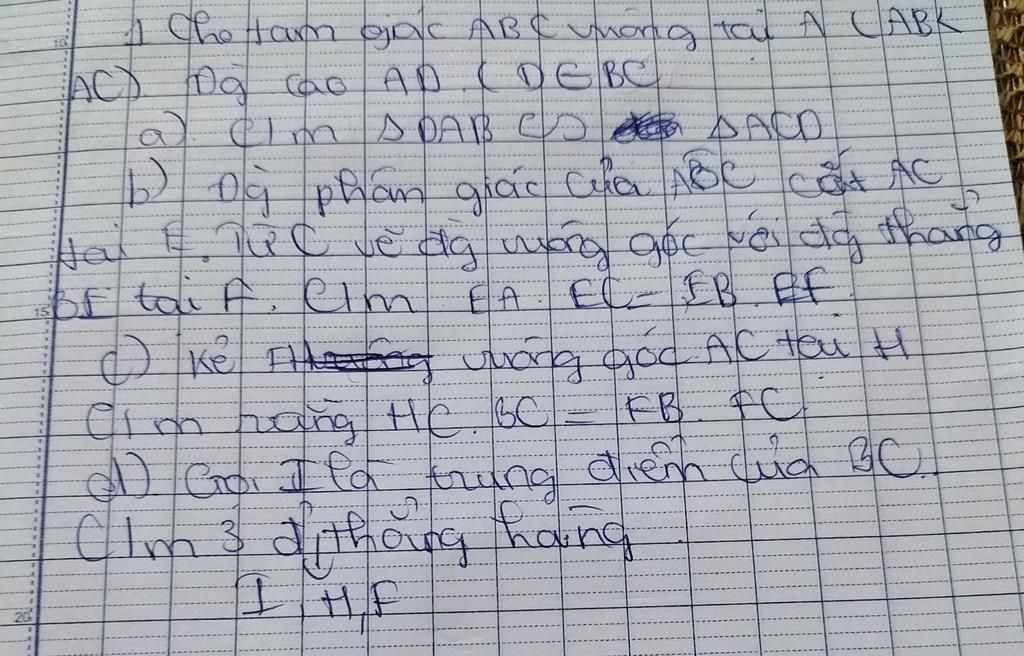 1 Cho tam giác ABC vuông tại A (AB<
AC). Đg cao AD. (D ∈ BC
a) C/m Δ DAB ∽ Δ ACD
b) Đg phâm giác của ABC cắt AC
tại E. Từ C vẽ đg vuông góc với đg thẳng
BE tại F. C/m EA. EC = EB. EF
c) Kẻ FH vuông góc AC tại H
C/m rằng HC. BC = FB. FC
d) Gọi I là trung điểm của BC.
C/m 3 đ' thẳng hàng
I, H, F
10
15
20